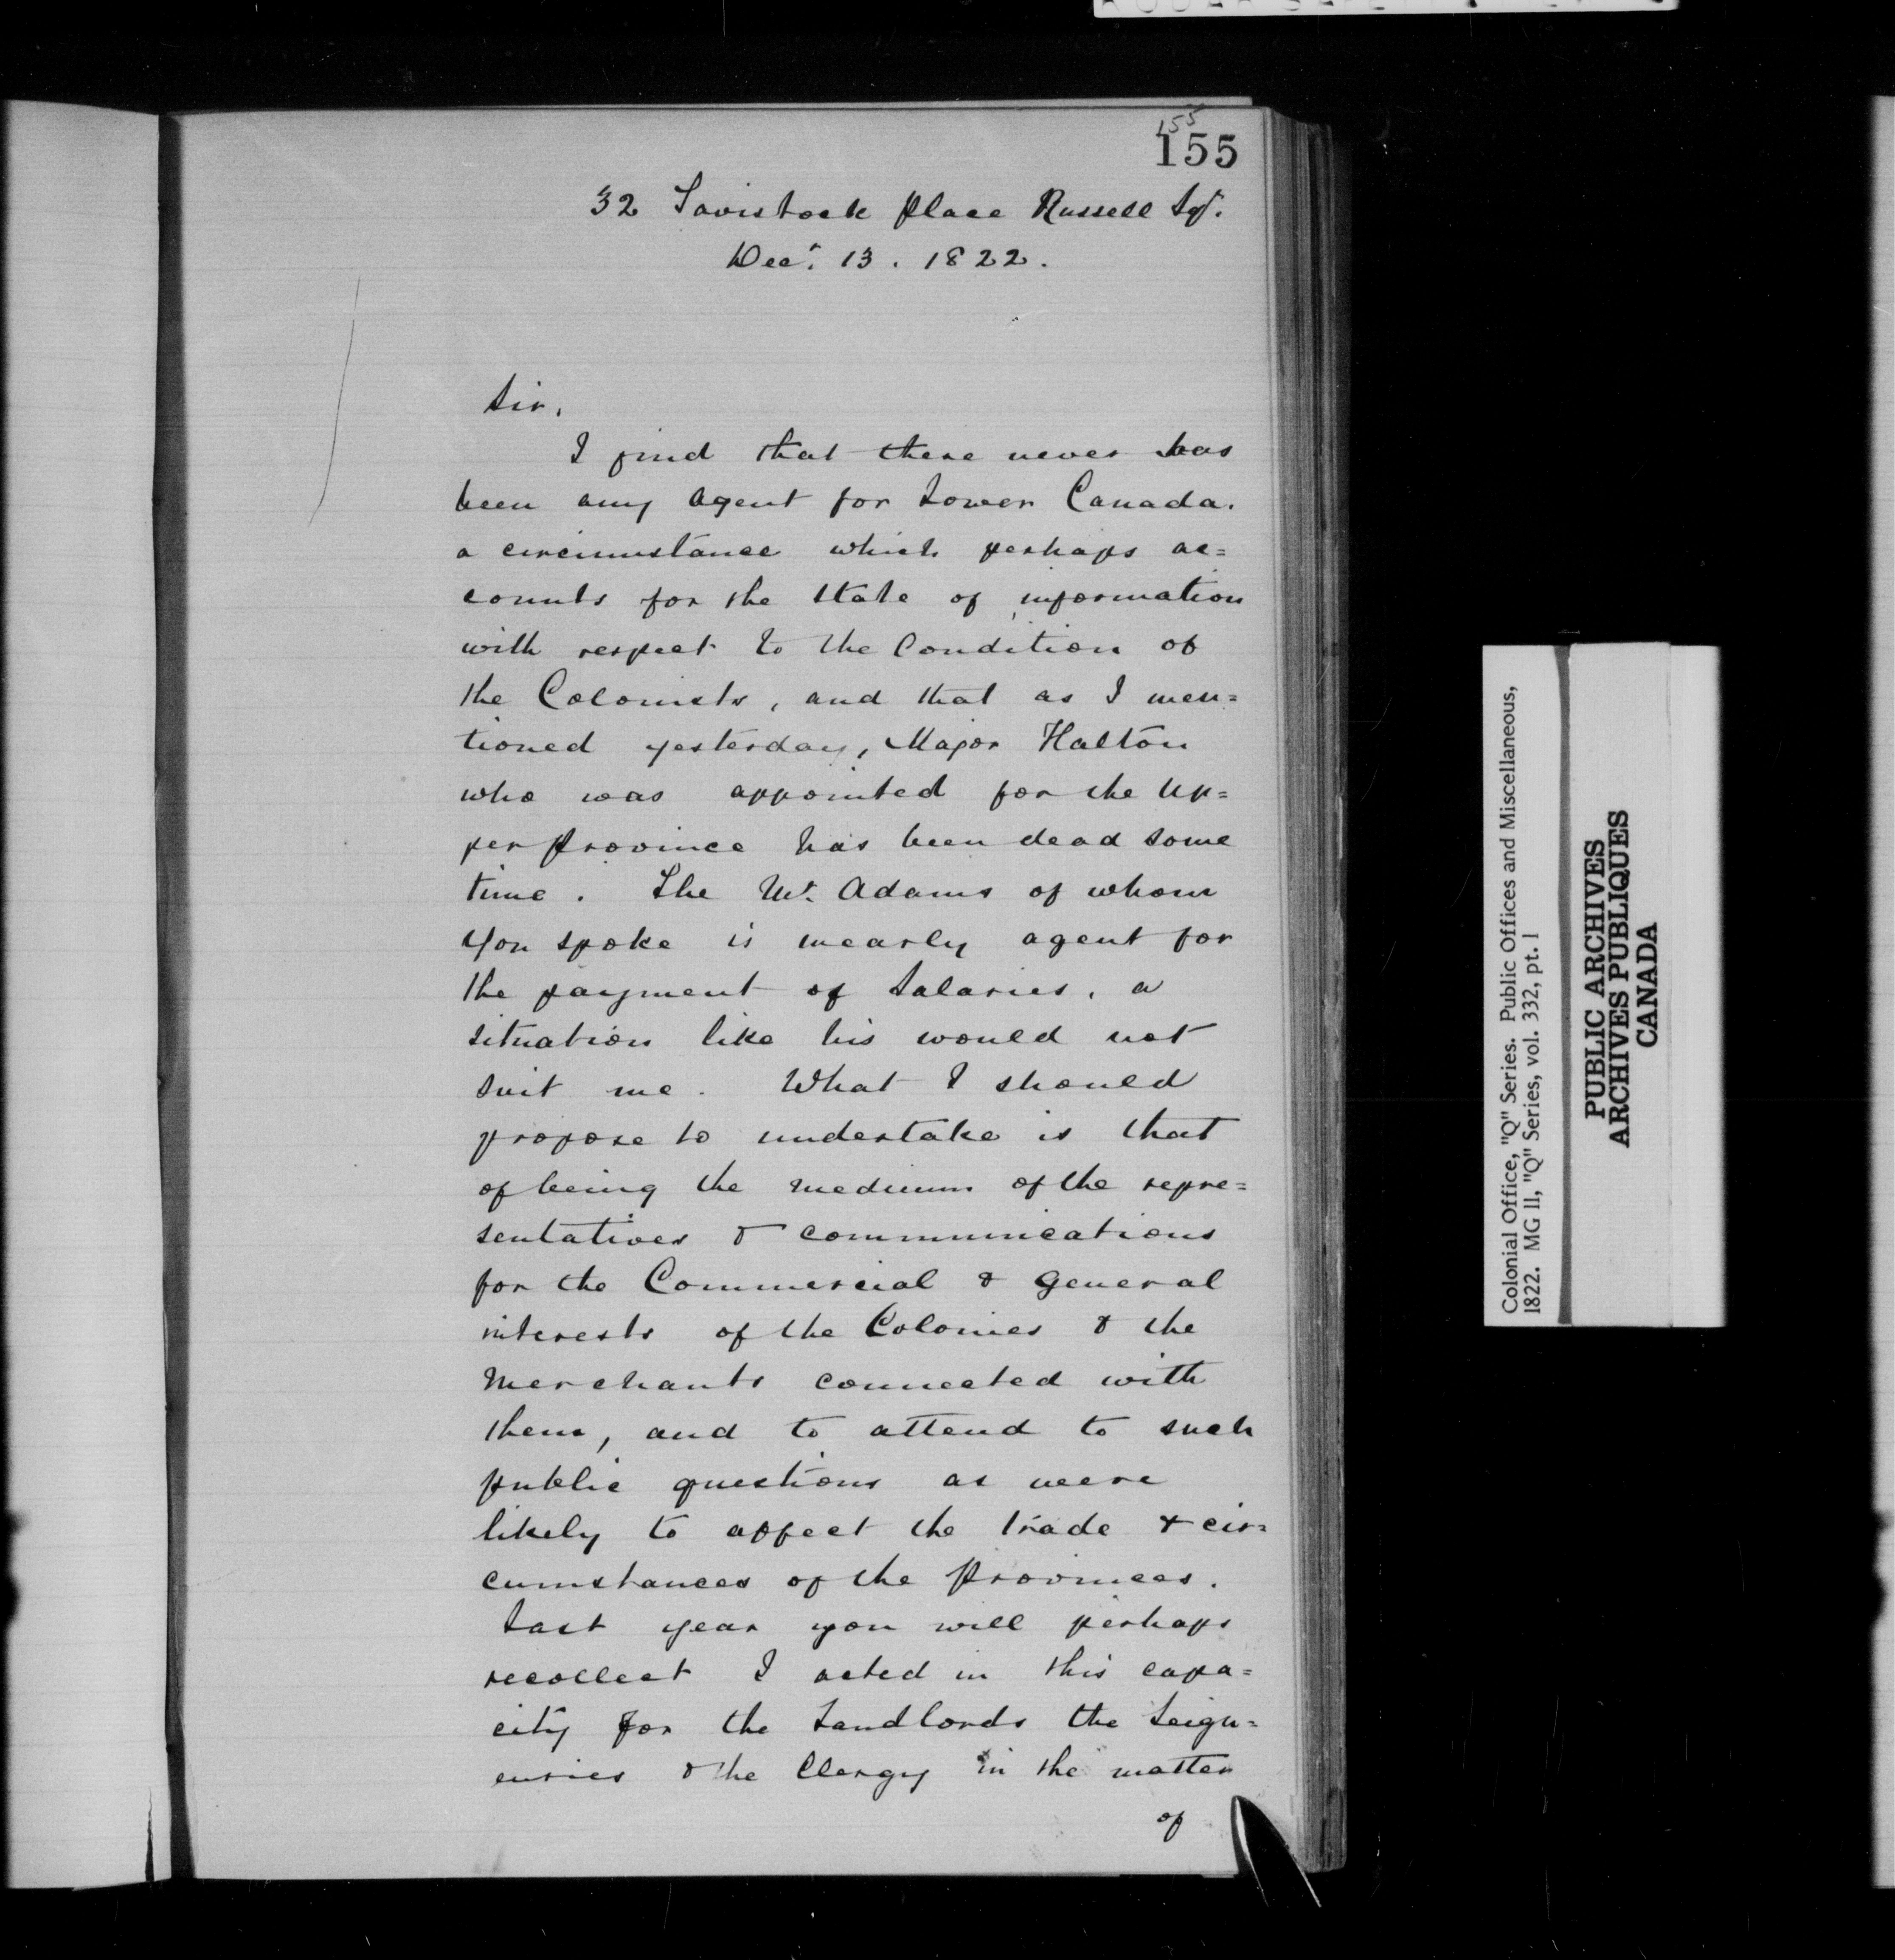 155
155
32 Tavistock place Russell Sqr.
Decr. 13. 1822.
Sir,
I find that there never has
been any Agent for Lower Canada.
a circumstance which perhaps ac=
counts for the State of information
with respect to the Condition of
the Colonists, and that as I men=
tioned yesterday, Major Halton
who was appointed for the Up=
per Province has been dead some
time. The Mr. Adams of whom
you spoke is mearly agent for
the payment of Salaries, a
situation like his would not
suit me. What I should
propose to undertake is that
of being the medium of the repre=
sentatives & communications
for the Commercial & general
interests of the Colonies & the
Merchants connected with
them, and to attend to such
public questions as were
likely to affect the trade & cir=
cumstances of the Provinces.
Last year you will perhaps
recollect I acted in this capa=
city for the Landlords the Seign=
euries & the Clergy in the matter
of
Colonial Office, "Q" Series. Public Offices and Miscellaneous,
1822. MG 11, "Q" Series, vol. 332, pt. 1
PUBLIC ARCHIVES
ARCHIVES PUBLIQUES
CANADA